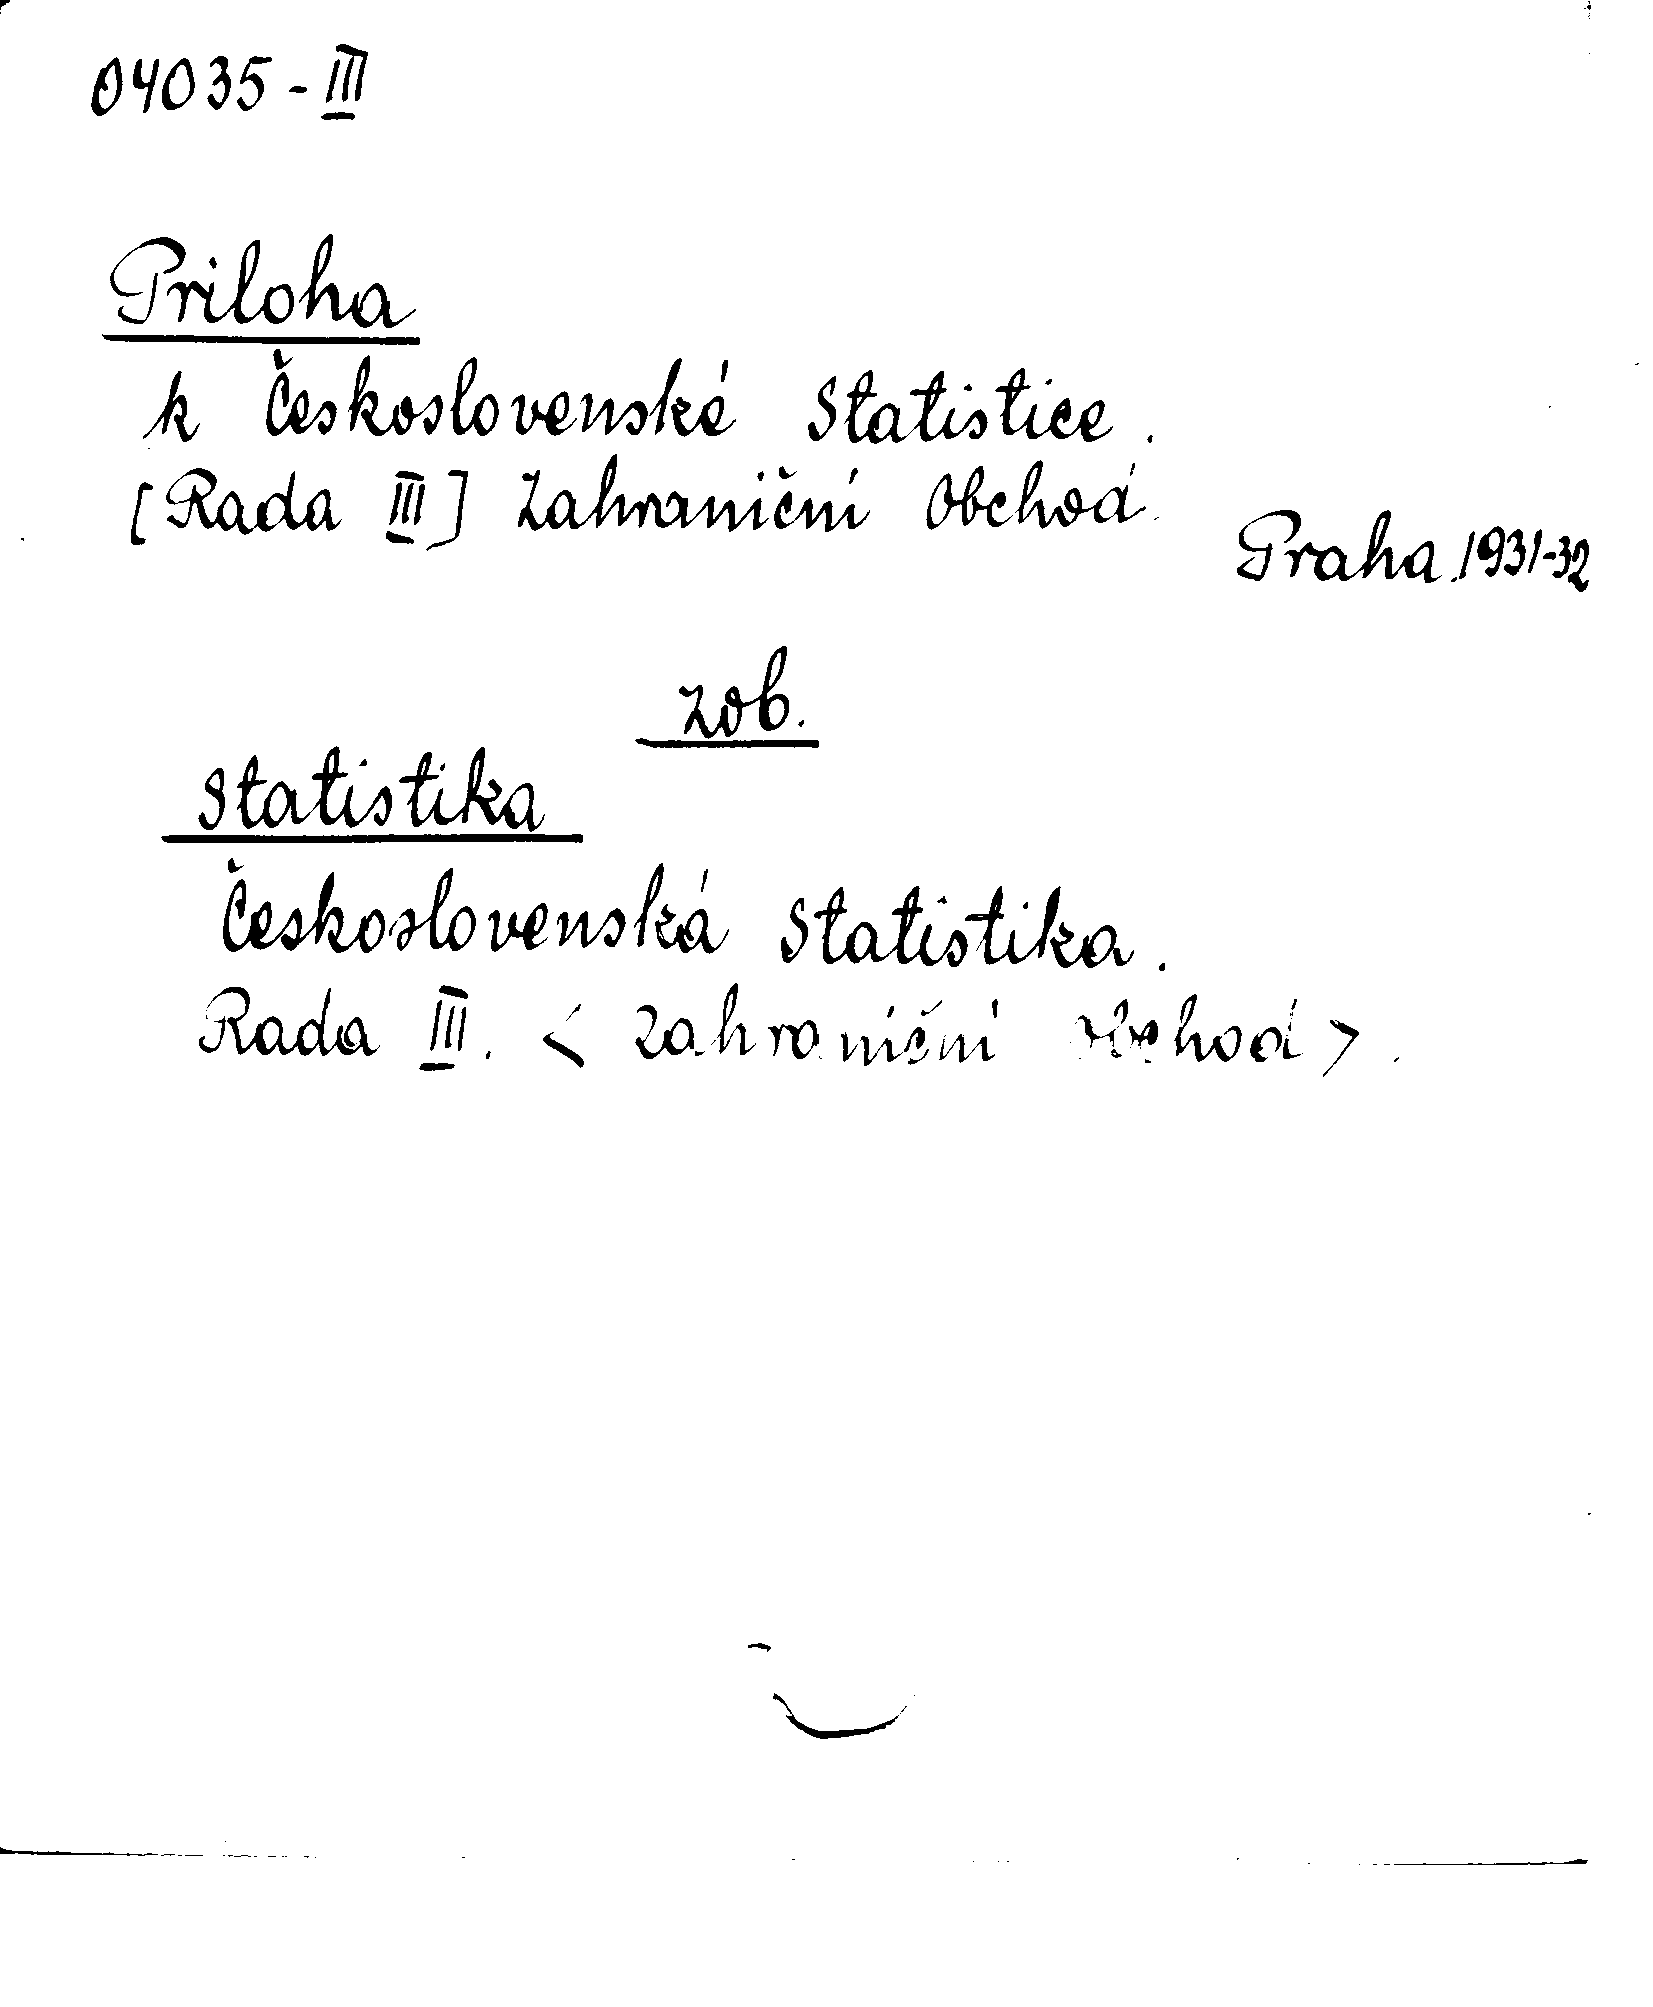 04035-III
Priloha
k Československé Statistice.
[Rada III] Zahraniční Obchod
Praha.1931-32
zob.
Statistika
Československá Statistika.
Rada III. < Zahraniční obchod >.